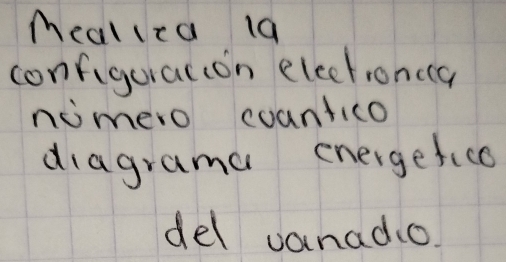 Realiza la
configuración electronica
número cuantico
diagrama energetico
del vanadio.